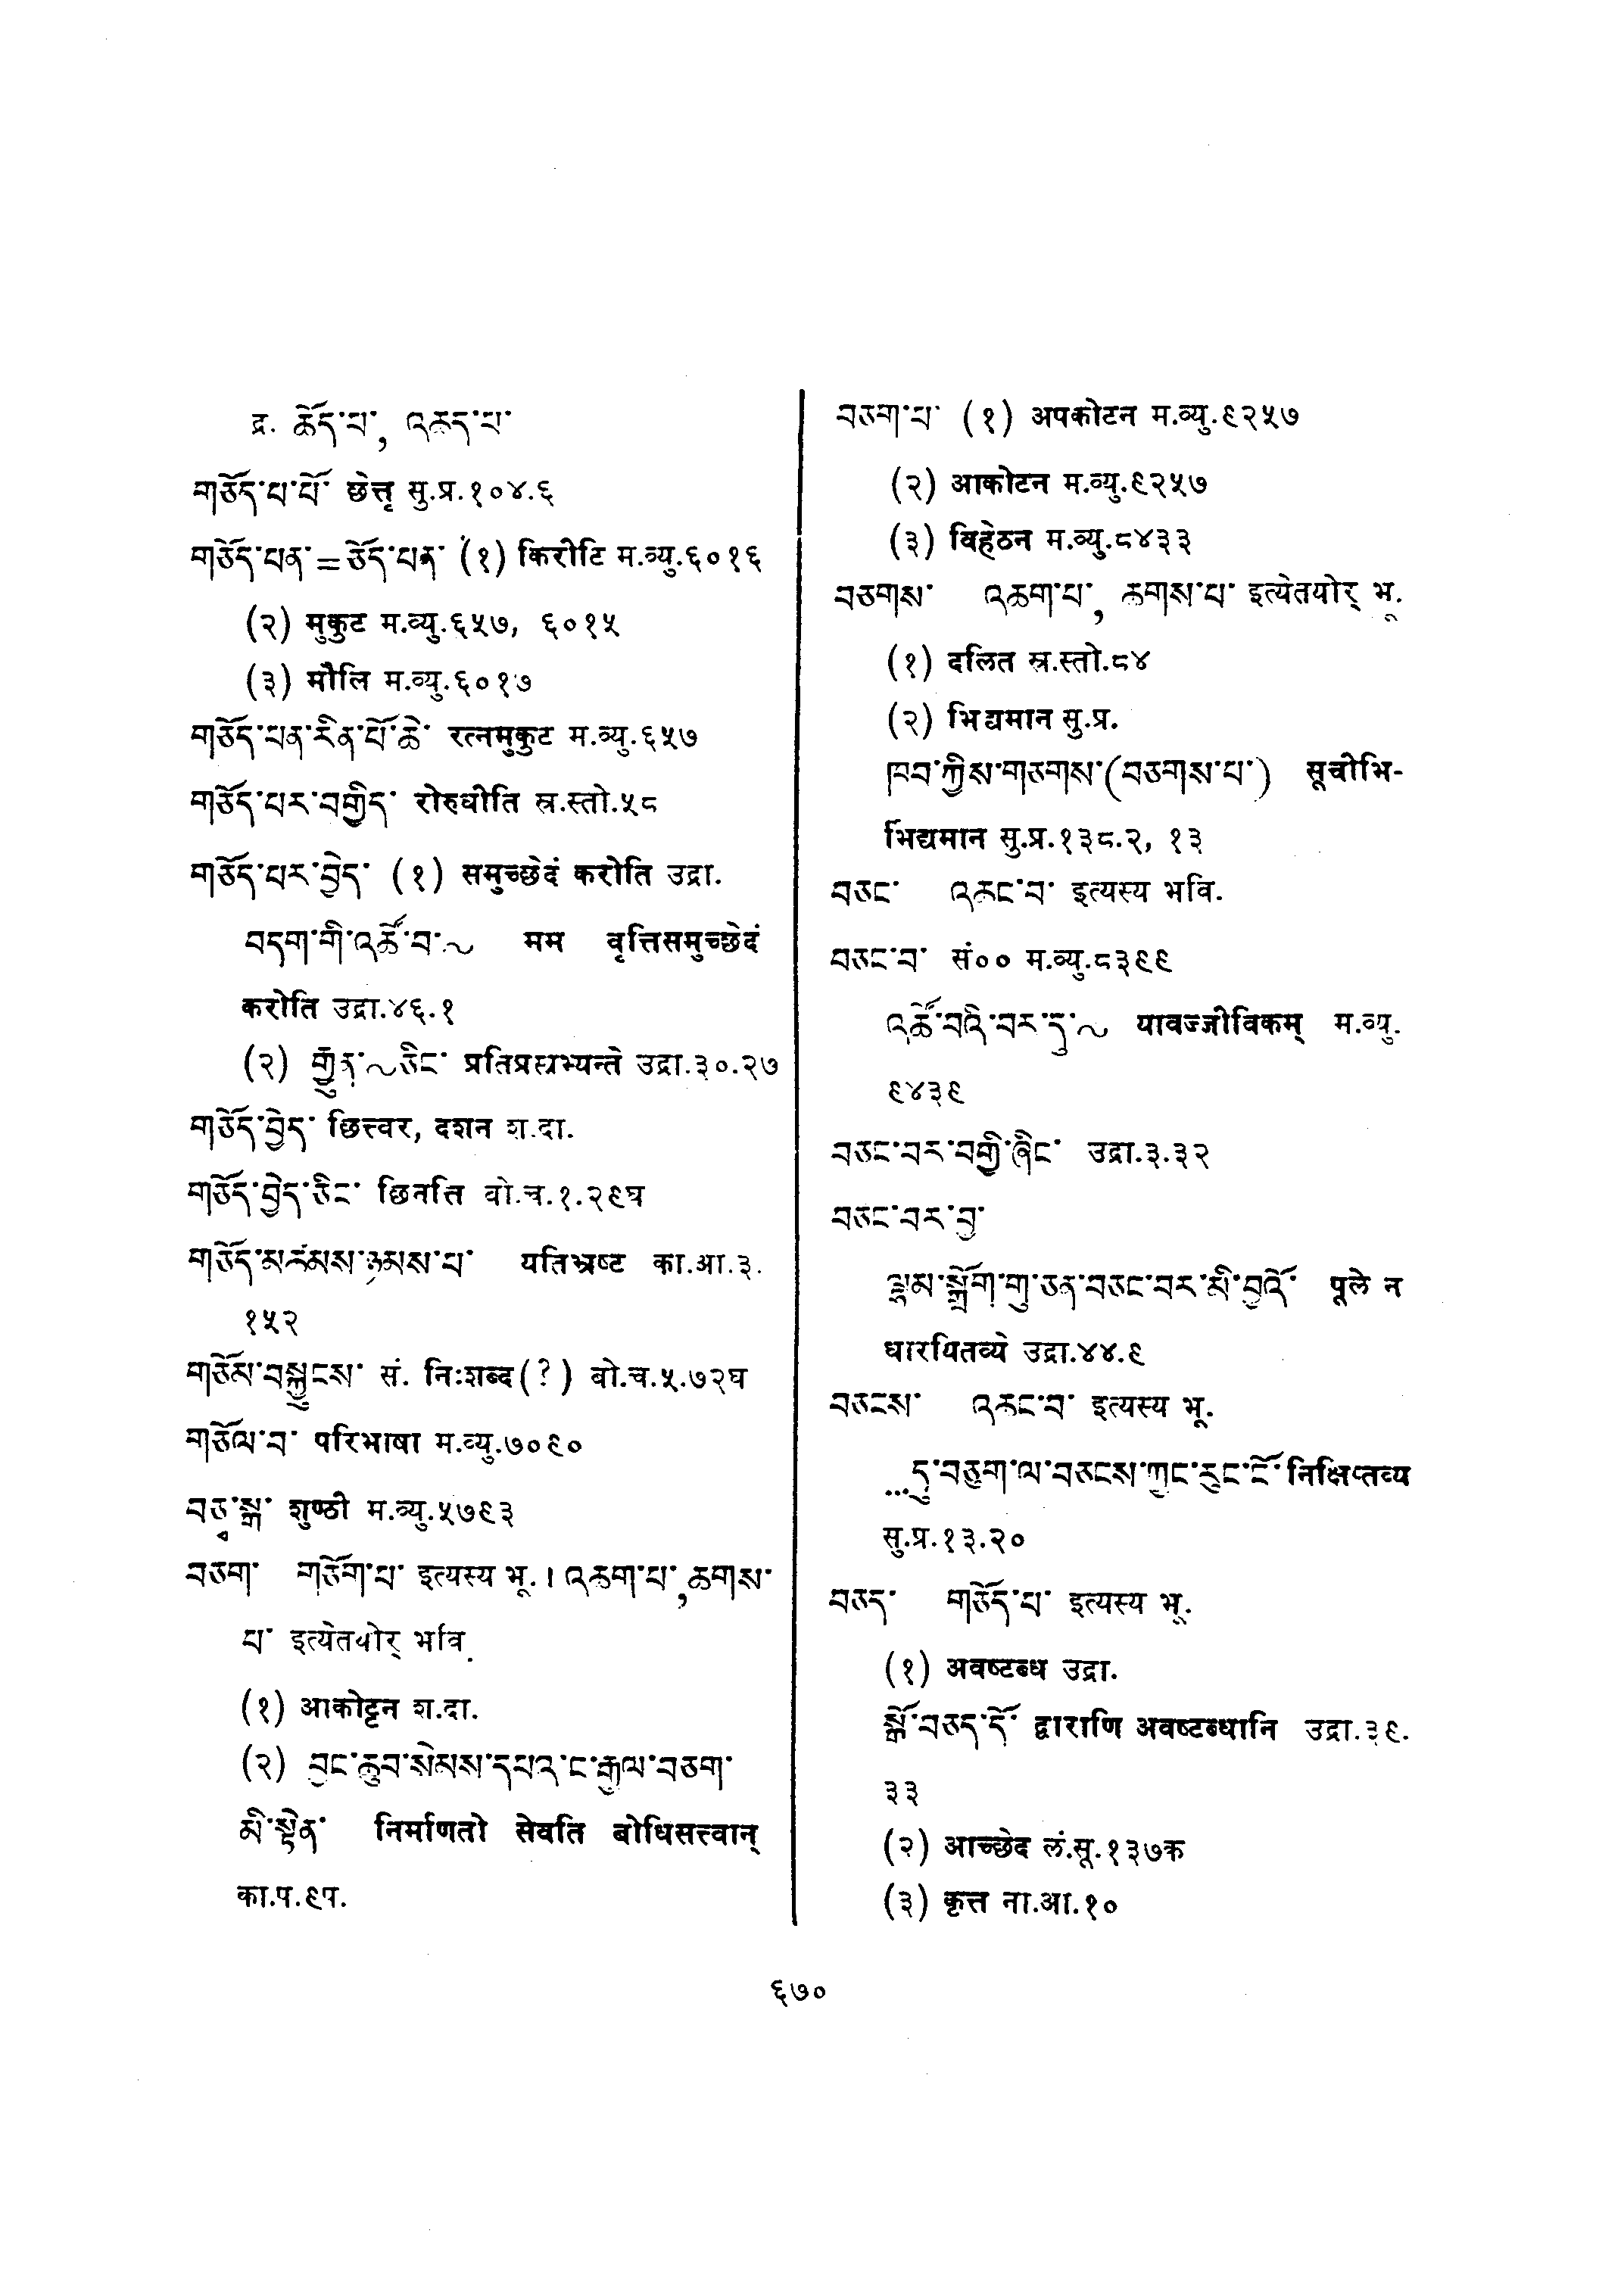 द्र. ཆོད་པ་, འཆད་པ་
གཅོད་པ་པོ་ छेत्तृ सु.प्र.१०४.६
གཅོད་པན་=ཅོད་པན་ (१) किरीटि म.व्यु.६०१६
(२) मुकुट म.व्यु.६५७, ६०१५
(३) मौलि म.व्यु.६०१७
གཅོད་པན་རིན་པོ་ཆེ་ रत्नमुकुट म.व्यु.६५७
གཅོད་པར་བགྱིད་ रोरुधीति स्र.स्तो.५८
གཅོད་པར་བྱེད་ (१) समुच्छेदं करोति उद्रा.
བདག་གི་འཚོ་བ་~ मम वृत्तिसमुच्छेदं
करोति उद्रा.४६.१
(२) རྒྱུན་~ཅིང་ प्रतिप्रस्रभ्यन्ते उद्रा.३०.२७
གཅོད་བྱེད་ छित्त्वर, दशन श.दा.
གཅོད་བྱེད་ཅིང་ छिनत्ति बो.च.१.२९घ
གཅོད་མཚམས་ཉམས་པ་ यतिभ्रष्ट का.आ.३.
१५२
གཅོམ་བསྐྱུངས་ सं. निःशब्द(?) बो.च.५.७२घ
གཅོལ་བ་ परिभाषा म.व्यु.७०९०
བཅྭ་སྒ་ शुण्ठी म.व्यु.५७९३
བཅག་ གཅོག་པ་ इत्यस्य भू.। འཆག་པ་,ཆགས་
པ་ इत्येतयोर् भवि.
(१) आकोट्टन श.दा.
(२) བྱང་ཆུབ་སེམས་དཔའ་ང་རྒྱལ་བཅག་
མི་སྟེན་ निर्माणतो सेवति बोधिसत्त्वान्
का.प.९प.
བཅག་པ་ (१) अपकोटन म.व्यु.९२५७
(२) आकोटन म.व्यु.९२५७
(३) विहेठन म.व्यु.८४३३
བཅགས་ འཆག་པ་, ཆགས་པ་ इत्येतयोर् भू.
(१) दलित स्र.स्तो.८४
(२) भिद्यमान सु.प्र.
ཁབ་ཀྱིས་གཅགས་(བཅགས་པ་) सूचीभि-
र्भिद्यमान सु.प्र.१३८.२, १३
བཅང་ འཆང་བ་ इत्यस्य भवि.
བཅང་བ་ सं०० म.व्यु.८३९९
འཚོ་བའི་བར་དུ་~ यावज्जीविकम् म.व्यु.
९४३९
བཅང་བར་བགྱི་ཞིང་ उद्रा.३.३२
བཅང་བར་བྱ་
ལྷམ་སྒྲོག་གུ་ཅན་བཅང་བར་མི་བྱའོ་ पूले न
धारयितव्ये उद्रा.४४.९
བཅངས་ འཆང་བ་ इत्यस्य भू.
...དུ་བཅུག་ལ་བཅངས་ཀྱང་རུང་ངོ་ निक्षिप्तव्य
सु.प्र.१३.२०
བཅད་ གཅོད་པ་ इत्यस्य भू.
(१) अवष्टब्ध उद्रा.
སྒོ་བཅད་དོ་ द्वाराणि अवष्टब्धानि उद्रा.३९.
३३
(२) आच्छेद लं.सू.१३७क
(३) कृत्त ना.आ.१०
६७०